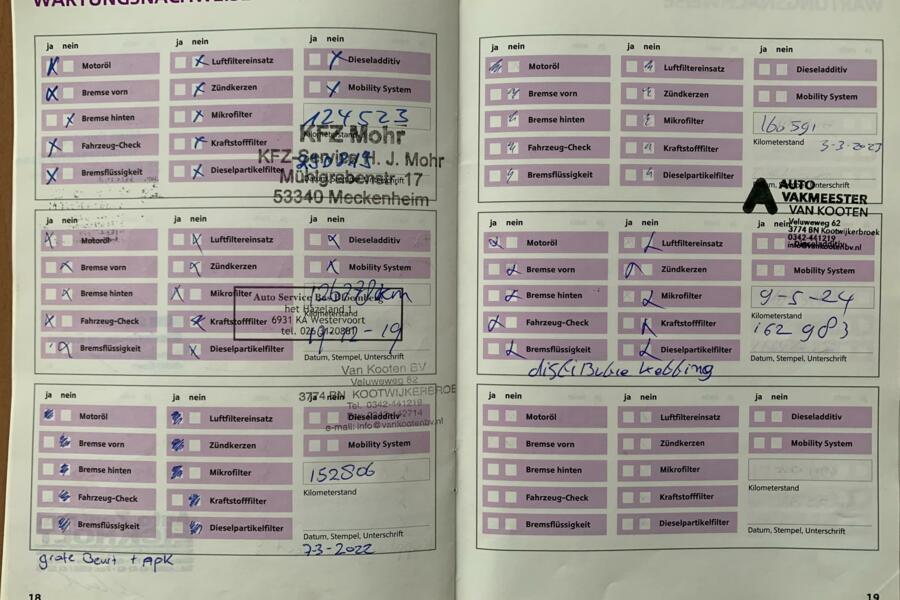 WARTUNGSNACHWEISE
ja nein
Motoröl
Bremse vorn
Bremse hinten
Fahrzeug-Check
Bremsflüssigkeit
ja nein
Luftfiltereinsatz
Zündkerzen
Mikrofilter
Kraftstofffilter
Dieselpartikelfilter
ja nein
Dieseladditiv
Mobility System
124523
Kilometerstand
KFZ Mohr
KFZ-Service H. J. Mohr
Mühlgrabenstr. 17
53340 Meckenheim
ja nein
Motoröl
Bremse vorn
Bremse hinten
Fahrzeug-Check
Bremsflüssigkeit
ja nein
Luftfiltereinsatz
Zündkerzen
Mikrofilter
Kraftstofffilter
Dieselpartikelfilter
ja nein
Dieseladditiv
Mobility System
Kilometerstand
Auto Service
het Hazeland 1
6931 KA Westervoort
19-12-19
Datum, Stempel, Unterschrift
Van Kooten BV
Veluweweg 62
3774 BN KOOTWIJKERBROEK
Tel. 0342-441219
e-mail: info@vankootenbv.nl
ja nein
Motoröl
Bremse vorn
Bremse hinten
Fahrzeug-Check
Bremsflüssigkeit
ja nein
Luftfiltereinsatz
Zündkerzen
Mikrofilter
Kraftstofffilter
Dieselpartikelfilter
ja nein
Dieseladditiv
Mobility System
152806
Kilometerstand
Datum, Stempel, Unterschrift
7-3-2022
grote Beurt + APK
18
ja nein
Motoröl
Bremse vorn
Bremse hinten
Fahrzeug-Check
Bremsflüssigkeit
ja nein
Luftfiltereinsatz
Zündkerzen
Mikrofilter
Kraftstofffilter
Dieselpartikelfilter
ja nein
Dieseladditiv
Mobility System
160591
Kilometerstand
3-3-2023
Datum, Stempel, Unterschrift
AUTO
VAKMEESTER
VAN KOOTEN
Veluweweg 62
3774 BN Kootwijkerbroek
0342-441219
info@vankootenbv.nl
ja nein
Motoröl
Bremse vorn
Bremse hinten
Fahrzeug-Check
Bremsflüssigkeit
ja nein
Luftfiltereinsatz
Zündkerzen
Mikrofilter
Kraftstofffilter
Dieselpartikelfilter
ja nein
Dieseladditiv
Mobility System
9-5-24
Kilometerstand
162983
Datum, Stempel, Unterschrift
distributie ketting
ja nein
Motoröl
Bremse vorn
Bremse hinten
Fahrzeug-Check
Bremsflüssigkeit
ja nein
Luftfiltereinsatz
Zündkerzen
Mikrofilter
Kraftstofffilter
Dieselpartikelfilter
ja nein
Dieseladditiv
Mobility System
Kilometerstand
Datum, Stempel, Unterschrift
19